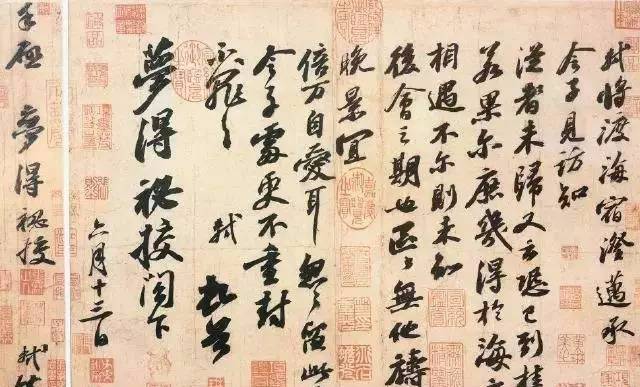 軾將渡海宿澄邁承
令子見訪知
從者未歸又云恐已到桂
若果爾庶幾得於海
相遇不爾則未知
後會之期也區〻無他禱
晚景宜
倍万自愛耳忽〻留此
令子處更不重封
不罪〻
軾 頓首
夢得祕校閣下
六月十三日
手啟 夢得祕校 軾